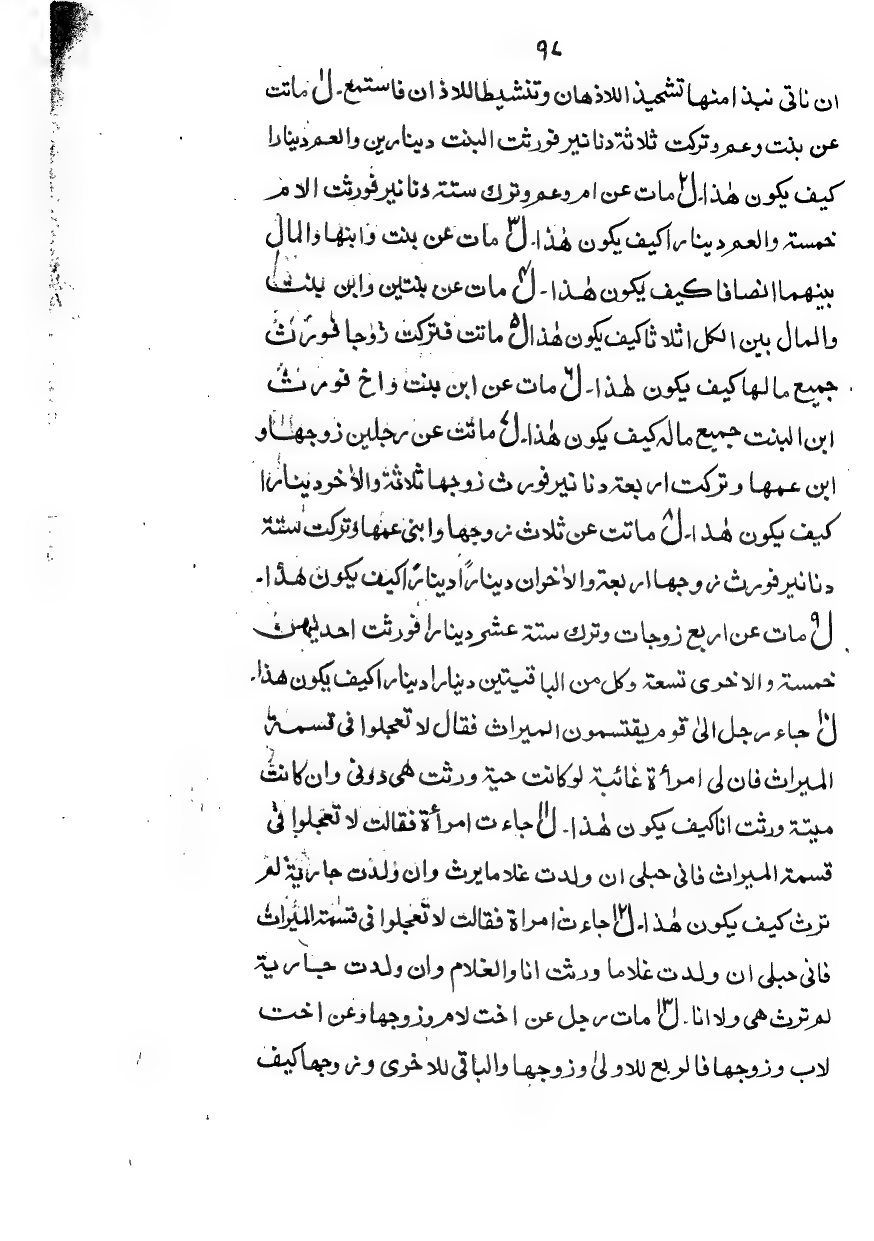 ٩٧
ان ناتی نبذ امنها تشحیذ اللاذهان وتنشیطا للاذان فاستمع۔ ل١ ماتت
عن بنت وعم وترکت ثلاثة دنانیر فورثت البنت دینارین والعم دینارا
کیف یکون هٰذا۔ ل٢ مات عن ام وعم وترك ستة دنانیر فورثت الام
خمسة والعم دینارا کیف یکون هٰذا۔ ل٣ مات عن بنت وابنها والمال
بینهما انصافا کیف یکون هٰذا۔ ل٤ مات عن بنتین وابن بنت
والمال بین الکل اثلاثا کیف یکون هٰذا ل٥ ماتت فترکت زوجا فورث
جمیع مالها کیف یکون هٰذا۔ ل٦ مات عن ابن بنت واخ فورث
ابن البنت جمیع ماله کیف یکون هٰذا۔ ل٧ ماتت عن رجلین زوجها و
ابن عمها وترکت اربعة دنانیر فورث زوجها ثلاثة والاٰخر دینارا
کیف یکون هٰذا۔ ل٨ ماتت عن ثلاث زوجها وابنی عمها وترکت ستة
دنانیر فورث زوجها اربعة والاٰخران دینارًا دینارًا کیف یکون هٰذا۔
ل٩ مات عن اربع زوجات وترك ستة عشر دینارا فورثت احدیهن
خمسة والاخری تسعة وکل من الباقیتین دینارا دینارا کیف یکون هذا۔
ل١٠ جاء رجل الیٰ قوم یقتسمون المیراث فقال لا تعجلوا فی قسمة
المیراث فان لی امرأة غائبة لوکانت حیة ورثت هی دونی وان کانت
میتة ورثت انا کیف یکون هٰذا۔ ل١١ جاءت امرأة فقالت لا تعجلوا فی
قسمة المیراث فانی حبلی ان ولدت غلاما یرث وان ولدت جاریة لم
ترث کیف یکون هٰذا۔ ل١٢ جاءت امراة فقالت لا تعجلوا فی قسمة المیراث
فانی حبلی ان ولدت غلاما ورثت انا والغلام وان ولدت جاریة
لم ترث هی ولا انا۔ ل١٣ مات رجل عن اخت لام وزوجها وعن اخت
لاب وزوجها فالربع للاولیٰ وزوجها والباقی للاخری وزوجها کیف